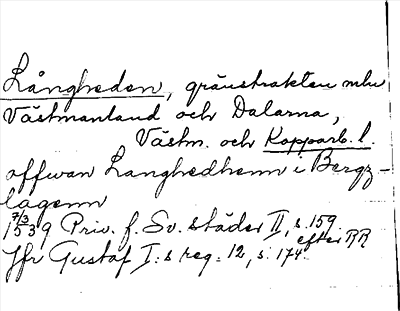 Långheden, gränstrakten mln
Västmanland och Dalarna,
Västm. och Kopparb. l
offwan Langhedhenn i Bergz-
lagenn
7/3 1539 Priv. f. Sv. städer II, s. 159
efter RR
Jfr Gustaf I:s reg. 12, s. 174.